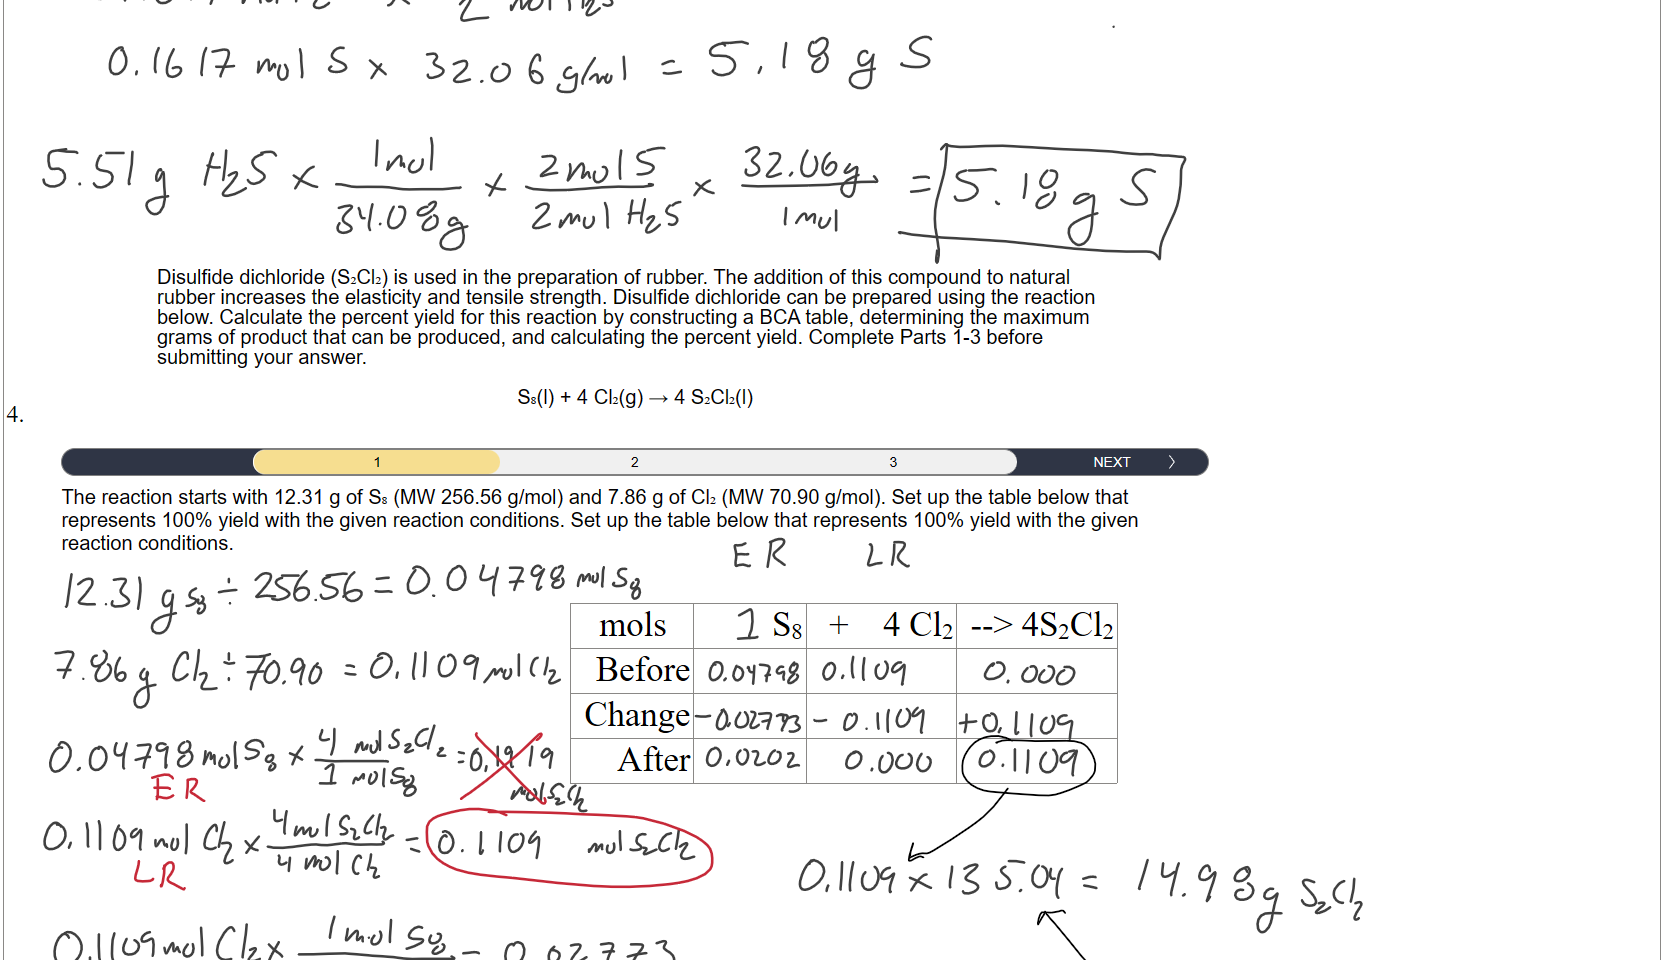 0.1617 mol S x 32.06 g/mol = 5.18 g S
5.51 g H2S x 1 mol / 34.08g x 2 mol S / 2 mol H2S x 32.06g / 1 mol = 5.18 g S
Disulfide dichloride (S₂Cl₂) is used in the preparation of rubber. The addition of this compound to natural
rubber increases the elasticity and tensile strength. Disulfide dichloride can be prepared using the reaction
below. Calculate the percent yield for this reaction by constructing a BCA table, determining the maximum
grams of product that can be produced, and calculating the percent yield. Complete Parts 1-3 before
submitting your answer.
S₈(l) + 4 Cl₂(g) → 4 S₂Cl₂(l)
4.
1 2 3 NEXT >
The reaction starts with 12.31 g of S₈ (MW 256.56 g/mol) and 7.86 g of Cl₂ (MW 70.90 g/mol). Set up the table below that
represents 100% yield with the given reaction conditions. Set up the table below that represents 100% yield with the given
reaction conditions.
ER LR
12.31 g S8 ÷ 256.56 = 0.04798 mol S8
mols 1 S₈ + 4 Cl₂ --> 4S₂Cl₂
7.86 g Cl2 ÷ 70.90 = 0.1109 mol Cl2
Before 0.04798 0.1109 0.000
Change -0.02773 - 0.1109 +0.1109
After 0.0202 0.000 0.1109
0.04798 mol S8 x 4 mol S2Cl2 / 1 mol S8 = 0.1919 mol S2Cl2
ER
0.1109 mol Cl2 x 4 mol S2Cl2 / 4 mol Cl2 = 0.1109 mol S2Cl2
LR
0.1109 x 135.04 = 14.98g S2Cl2
0.1109 mol Cl2 x 1 mol S8 = 0.02773